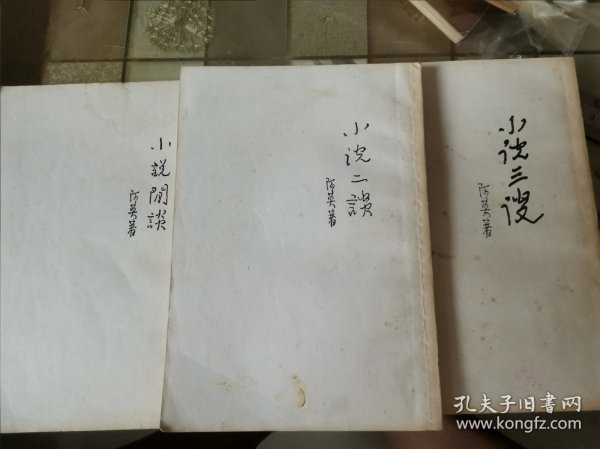 小說閒談
阿英著
小说二談
阿英著
小说三谈
阿英著
孔夫子旧书网
www.kongfz.com